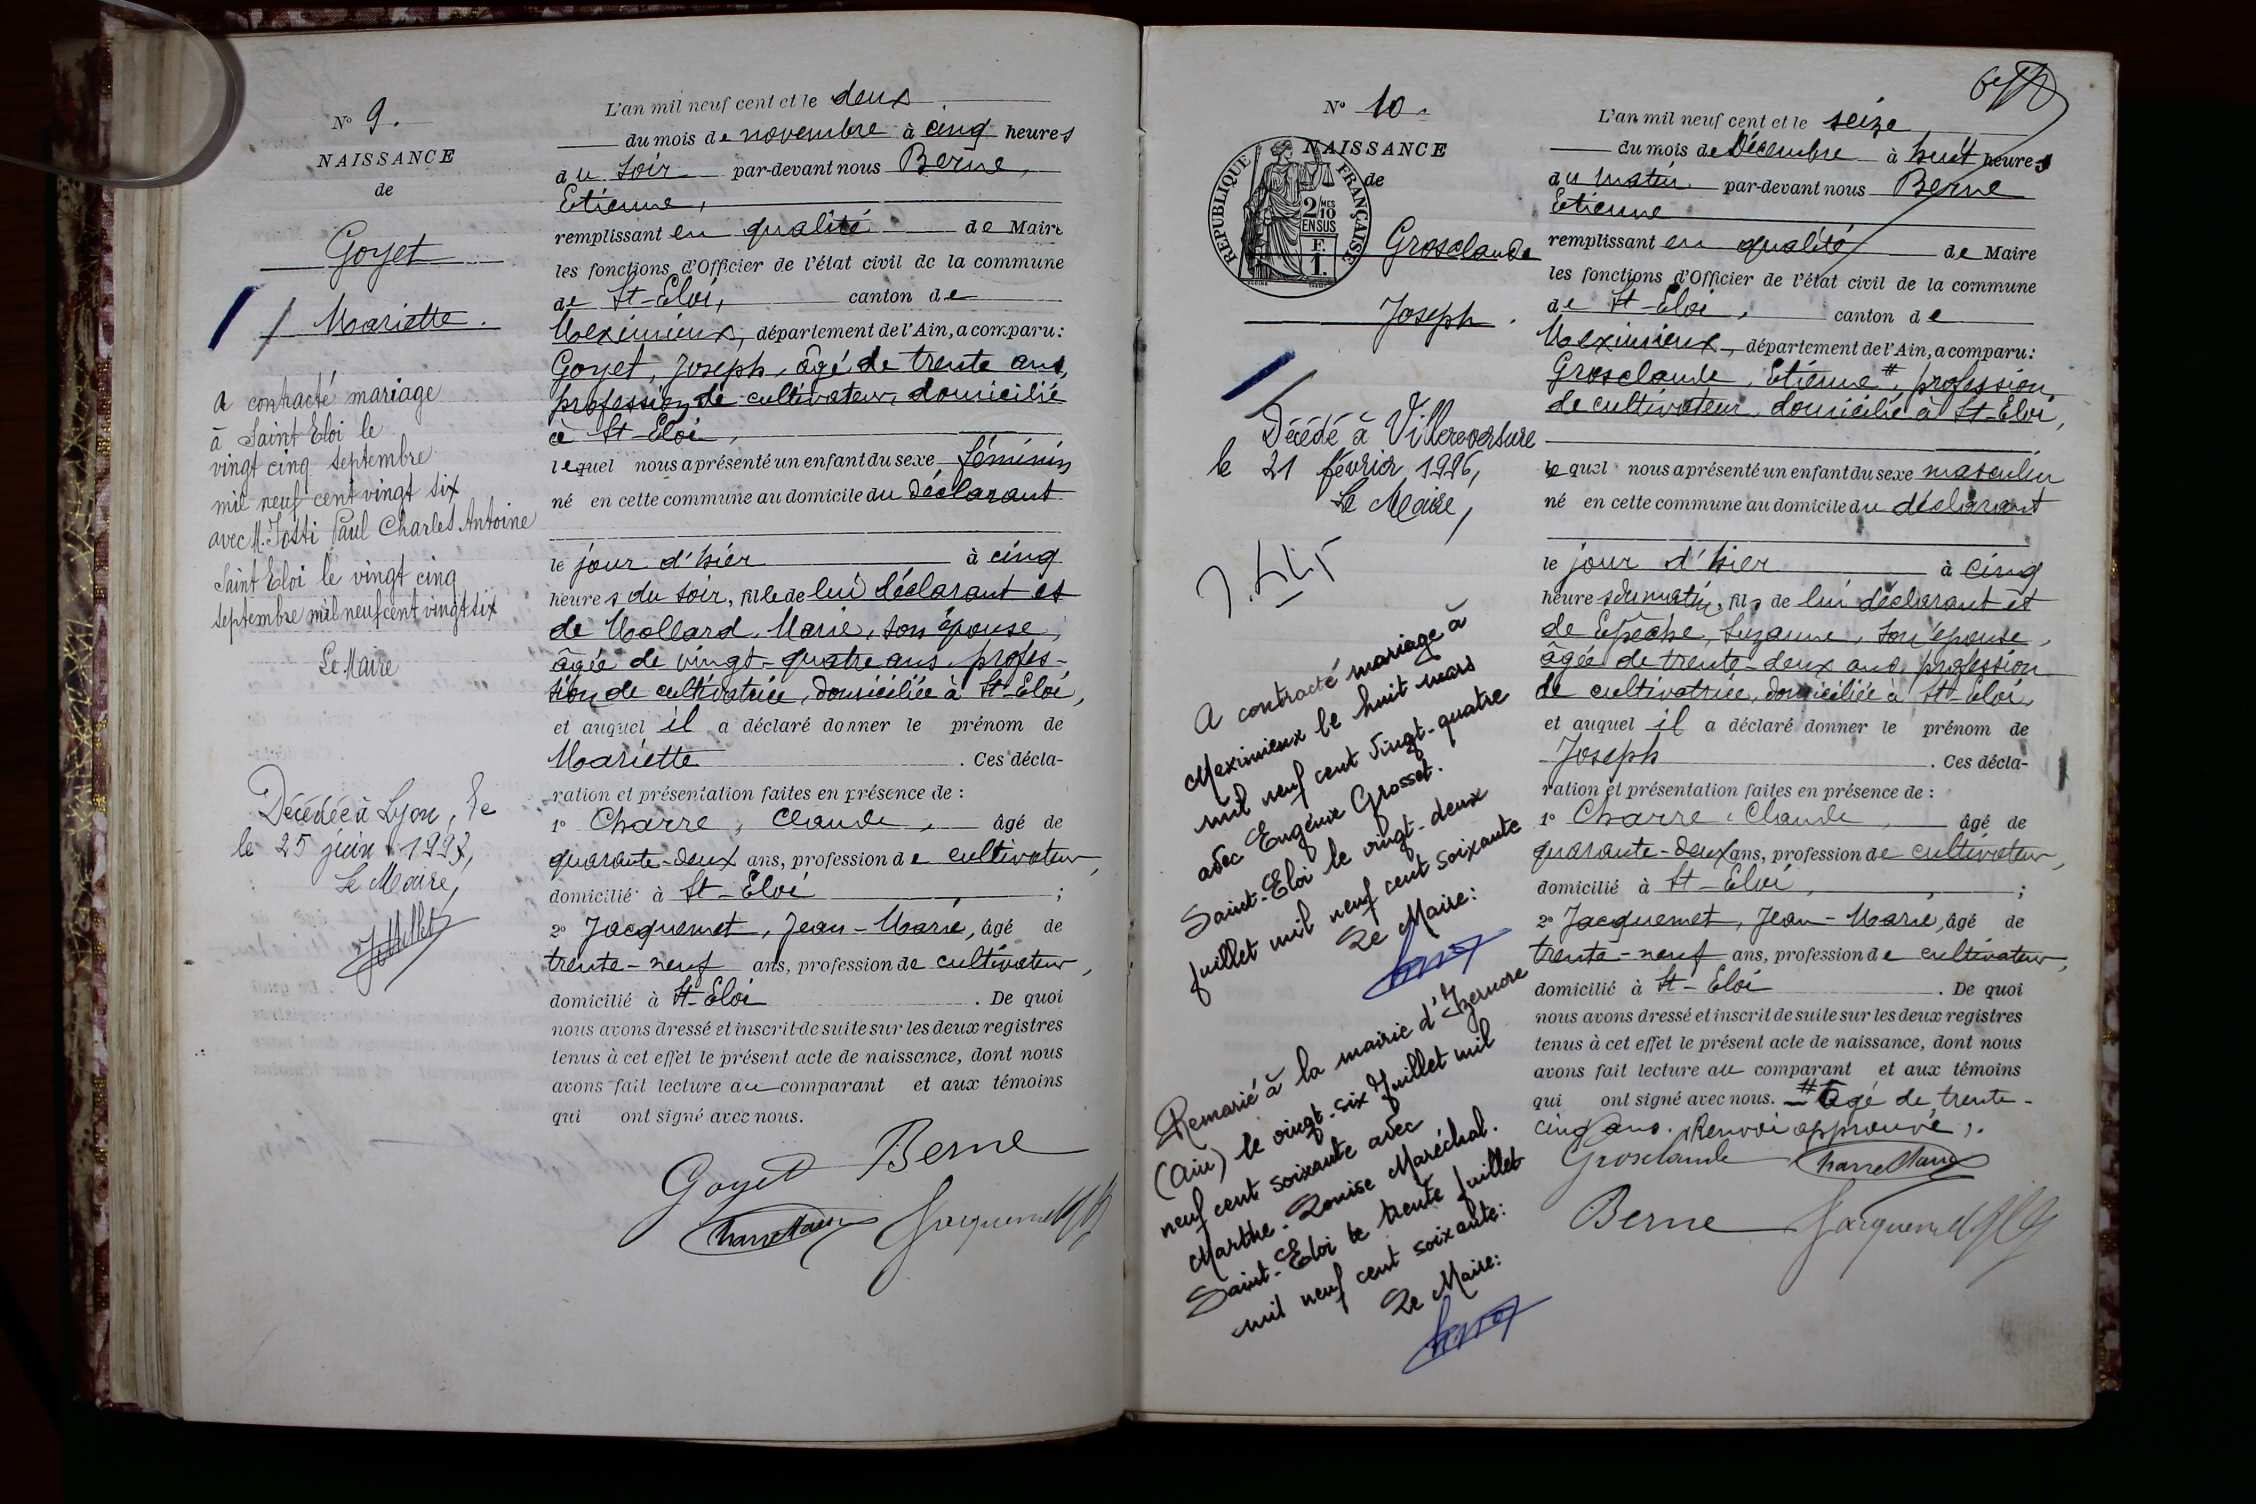 N° 9.
NAISSANCE
de
Goyet
Mariette.
A contracté mariage
à Saint Eloi le
vingt cinq septembre
mil neuf cent vingt six
avec M. Josti Paul Charles Antoine
Saint Eloi le vingt cinq
septembre mil neuf cent vingt six
Le Maire
Décédée à Lyon,
le 25 juin
Le Maire,
L'an mil neuf cent et le deux
du mois de novembre à cinq heures
du soir par-devant nous Berne,
Etienne,
remplissant en qualité de Maire
les fonctions d'Officier de l'état civil de la commune
de St-Eloi, canton de
Meximieux, département de l'Ain, a comparu:
Goyet, Joseph, âgé de trente ans,
profession de cultivateur, domicilié
à St-Eloi,
lequel nous a présenté un enfant du sexe féminin
né en cette commune au domicile du déclarant
le jour d'hier à cinq
heures du soir, fille de lui déclarant et
de Mollard, Marie, son épouse,
âgée de vingt-quatre ans, profes-
sion de cultivatrice, domiciliée à St-Eloi,
et auquel il a déclaré donner le prénom de
Mariette. Ces décla-
ration et présentation faites en présence de :
1° Charre, Claude, âgé de
quarante-deux ans, profession de cultivateur,
domicilié à St-Eloi ;
2° Jacquemet, Jean-Marie, âgé de
trente-neuf ans, profession de cultivateur,
domicilié à St-Eloi. De quoi
nous avons dressé et inscrit de suite sur les deux registres
tenus à cet effet le présent acte de naissance, dont nous
avons fait lecture au comparant et aux témoins
qui ont signé avec nous.
Goyet Berne
Charre Claude Jacquemet
N° 10.
NAISSANCE
de
REPUBLIQUE FRANÇAISE
2/10 MES
EN SUS
F.
1.
Grosclaude
Joseph.
Décédé à Villereversure
le 21 février 1996,
Le Maire,
A contracté mariage à
Meximieux le huit mars
mil neuf cent vingt-quatre
avec Eugénie Grosset.
Saint-Eloi le vingt-deux
juillet mil neuf cent soixante
Le Maire:
Remarié à la mairie d'Izernore
(Ain) le vingt-six juillet mil
neuf cent soixante avec
Marthe-Louise Maréchal.
Saint-Eloi le trente juillet
mil neuf cent soixante:
Le Maire:
L'an mil neuf cent et le seize
du mois de Décembre à huit heures
du matin par-devant nous Berne
Etienne
remplissant en qualité de Maire
les fonctions d'Officier de l'état civil de la commune
de St-Eloi, canton de
Meximieux, département de l'Ain, a comparu:
Grosclaude, Etienne #, profession
de cultivateur, domicilié à St-Eloi,
lequel nous a présenté un enfant du sexe masculin
né en cette commune au domicile du déclarant
le jour d'hier à cinq
heures du matin, fils de lui déclarant et
de Epêche, Suzanne, son épouse,
âgée de trente-deux ans, profession
de cultivatrice, domiciliée à St-Eloi,
et auquel il a déclaré donner le prénom de
Joseph. Ces décla-
ration et présentation faites en présence de :
1° Charre, Claude, âgé de
quarante-deux ans, profession de cultivateur,
domicilié à St-Eloi, ;
2° Jacquemet, Jean-Marie, âgé de
trente-neuf ans, profession de cultivateur,
domicilié à St-Eloi. De quoi
nous avons dressé et inscrit de suite sur les deux registres
tenus à cet effet le présent acte de naissance, dont nous
avons fait lecture au comparant et aux témoins
qui ont signé avec nous. # âgé de trente-
cinq ans. Renvoi approuvé,.
Grosclaude Charre Claude
Berne Jacquemet